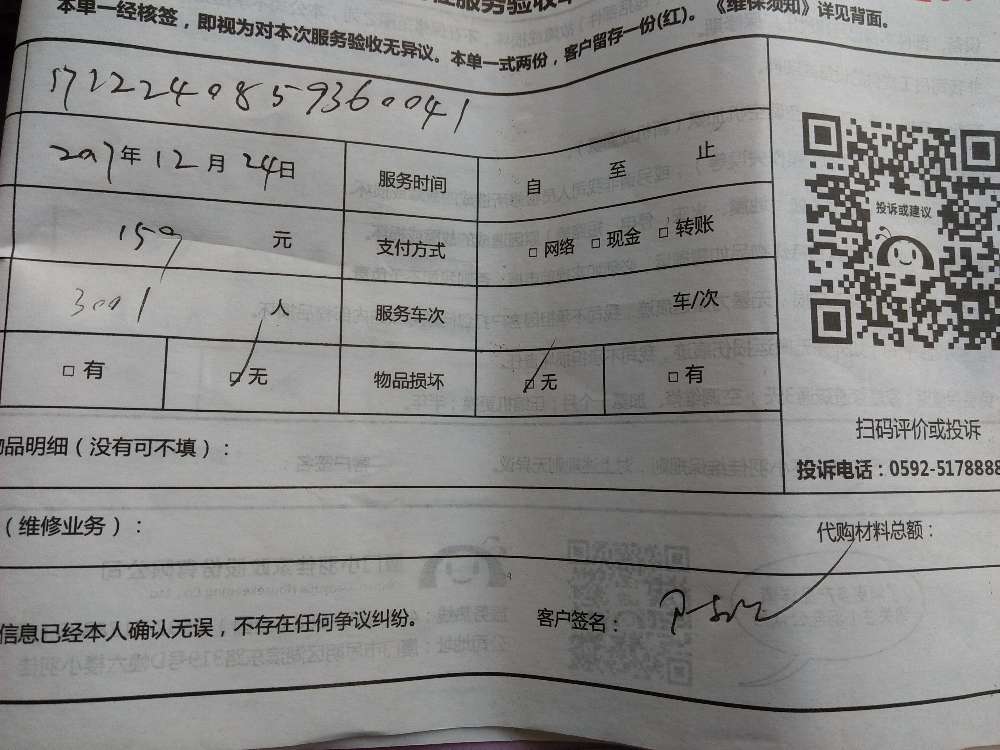 服务验收单
本单一经核签，即视为对本次服务验收无异议。本单一式两份，客户留存一份(红)。《维保须知》详见背面。
1712240859360041
2017年12月24日 服务时间 自 至 止
159 元 支付方式 □网络 □现金 □转账
3001 人 服务车次 车/次
□有 □无 物品损坏 □无 □有
投诉或建议
扫码评价或投诉
投诉电话：0592-5178888
物品明细（没有可不填）：
（维修业务）：
代购材料总额：
信息已经本人确认无误，不存在任何争议纠纷。 客户签名：